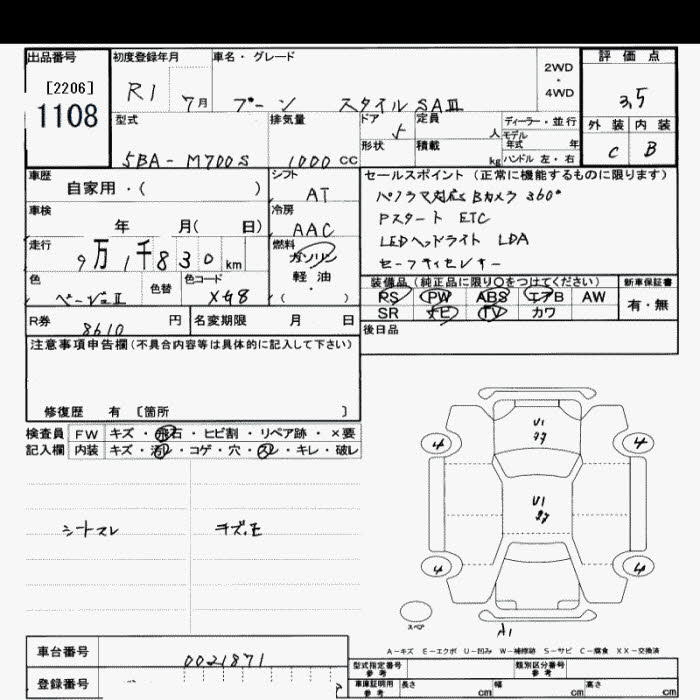 出品番号
[2206]
1108
初度登録年月
R1 7月
車名・グレード
ブーン スタイル SAⅢ
2WD
・
4WD
評価点
3.5
外装 内装
C B
型式
5BA-M700S
排気量
1000 CC
ドア 5
形状
定員 人
積載 kg
ディーラー・並行
モデル
年式 年
ハンドル 左・右
車歴
自家用・( )
シフト
AT
車検
年 月( 日)
冷房
AAC
走行
9万1千830 km
燃料
ガソリン
・
軽油
( )
色
ベージュⅡ
色替
色コード
R券
8610 円
名変期限 月 日
セールスポイント(正常に機能するものに限ります)
パノラマ対応Bカメラ 360°
Pスタート ETC
LEDヘッドライト LDA
装備品(純正品に限り○をつけてください)
PS PW ABS エアB AW
SR ナビ TV カワ
新車保証書
有・無
後日品
注意事項申告欄(不具合内容等は具体的に記入して下さい)
修復歴 有 〔箇所 〕
検査員
記入欄
FW キズ・飛石・ヒビ割・リペア跡・×要
内装 キズ・汚レ・コゲ・穴・スレ・キレ・破レ
シートスレ
U1
U1
4 4
4 4
スペア
A1
A-キズ E-エクボ U-凹み W-補修跡 S-サビ C-腐食 XX-交換済
車台番号
0021871
登録番号
型式指定番号
参考
類別区分番号
参考
車庫証明用
参考
長さ cm 幅 cm 高さ cm